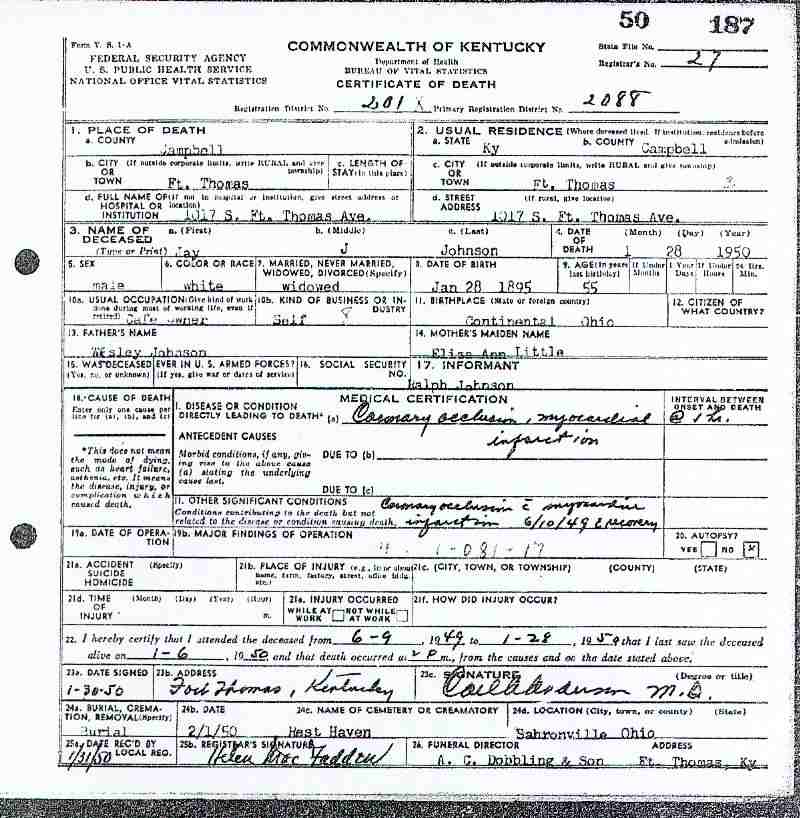 50 187
Form V. S. 1-A
COMMONWEALTH OF KENTUCKY
State File No.
FEDERAL SECURITY AGENCY
Department of Health
Registrar's No. 27
U. S. PUBLIC HEALTH SERVICE
BUREAU OF VITAL STATISTICS
NATIONAL OFFICE VITAL STATISTICS
CERTIFICATE OF DEATH
Registration District No. 201 X Primary Registration District No. 2088
1. PLACE OF DEATH
2. USUAL RESIDENCE (Where deceased lived. If institution, residence before admission)
a. COUNTY Campbell
a. STATE Ky b. COUNTY Campbell
b. CITY (If outside corporate limits, write RURAL and give township) OR TOWN Ft. Thomas
c. LENGTH OF STAY (in this place)
c. CITY (If outside corporate limits, write RURAL and give township) OR TOWN Ft. Thomas
d. FULL NAME OF (If not in hospital or institution, give street address or location) HOSPITAL OR INSTITUTION 1017 S. Ft. Thomas Ave.
d. STREET ADDRESS (If rural, give location) 1017 S. Ft. Thomas Ave.
3. NAME OF DECEASED (Type or Print) a. (First) Jay b. (Middle) J c. (Last) Johnson
4. DATE OF DEATH (Month) (Day) (Year) 1 28 1950
5. SEX male
6. COLOR OR RACE white
7. MARRIED, NEVER MARRIED, WIDOWED, DIVORCED (Specify) widowed
8. DATE OF BIRTH Jan 28 1895
9. AGE (In years last birthday) 55 If Under 1 Year Months Days If Under 24 Hrs. Hours Min.
10a. USUAL OCCUPATION (Give kind of work done during most of working life, even if retired) Cafe owner
10b. KIND OF BUSINESS OR INDUSTRY Self 8
11. BIRTHPLACE (State or foreign country) Continental Ohio
12. CITIZEN OF WHAT COUNTRY?
13. FATHER'S NAME Wesley Johnson
14. MOTHER'S MAIDEN NAME Eliza Ann Little
15. WAS DECEASED EVER IN U. S. ARMED FORCES? (Yes, no, or unknown) (If yes, give war or dates of service)
16. SOCIAL SECURITY NO.
17. INFORMANT Ralph Johnson
18. CAUSE OF DEATH
Enter only one cause per line for (a), (b), and (c)
MEDICAL CERTIFICATION
INTERVAL BETWEEN ONSET AND DEATH
I. DISEASE OR CONDITION DIRECTLY LEADING TO DEATH* (a) Coronary occlusion, myocardial infarction
@ 1 hr.
*This does not mean the mode of dying, such as heart failure, asthenia, etc. It means the disease, injury, or complication which caused death.
ANTECEDENT CAUSES
Morbid conditions, if any, giving rise to the above cause (a) stating the underlying cause last.
DUE TO (b)
DUE TO (c)
II. OTHER SIGNIFICANT CONDITIONS
Conditions contributing to the death but not related to the disease or condition causing death.
Coronary occlusion c̄ myocardial infarction 6/10/49 & recovery
19a. DATE OF OPERATION
19b. MAJOR FINDINGS OF OPERATION
20. AUTOPSY? YES NO X
21a. ACCIDENT SUICIDE HOMICIDE (Specify)
21b. PLACE OF INJURY (e.g., in or about home, farm, factory, street, office bldg., etc.)
21c. (CITY, TOWN, OR TOWNSHIP) (COUNTY) (STATE)
21d. TIME OF INJURY (Month) (Day) (Year) (Hour) m.
21e. INJURY OCCURRED WHILE AT WORK NOT WHILE AT WORK
21f. HOW DID INJURY OCCUR?
22. I hereby certify that I attended the deceased from 6-9, 1949 to 1-28, 1950 that I last saw the deceased
alive on 1-6, 1950, and that death occurred at 2 P m., from the causes and on the date stated above.
23a. DATE SIGNED 1-30-50
23b. ADDRESS Fort Thomas, Kentucky
23c. SIGNATURE Anderson M.D. (Degree or title)
24a. BURIAL, CREMATION, REMOVAL (Specify) Burial
24b. DATE 2/1/50
24c. NAME OF CEMETERY OR CREMATORY Rest Haven
24d. LOCATION (City, town, or county) (State) Sahronville Ohio
25a. DATE REC'D BY LOCAL REG. 1/31/50
25b. REGISTRAR'S SIGNATURE Helen Mac Fadden
26. FUNERAL DIRECTOR ADDRESS A. C. Dobbling & Son Ft. Thomas, Ky